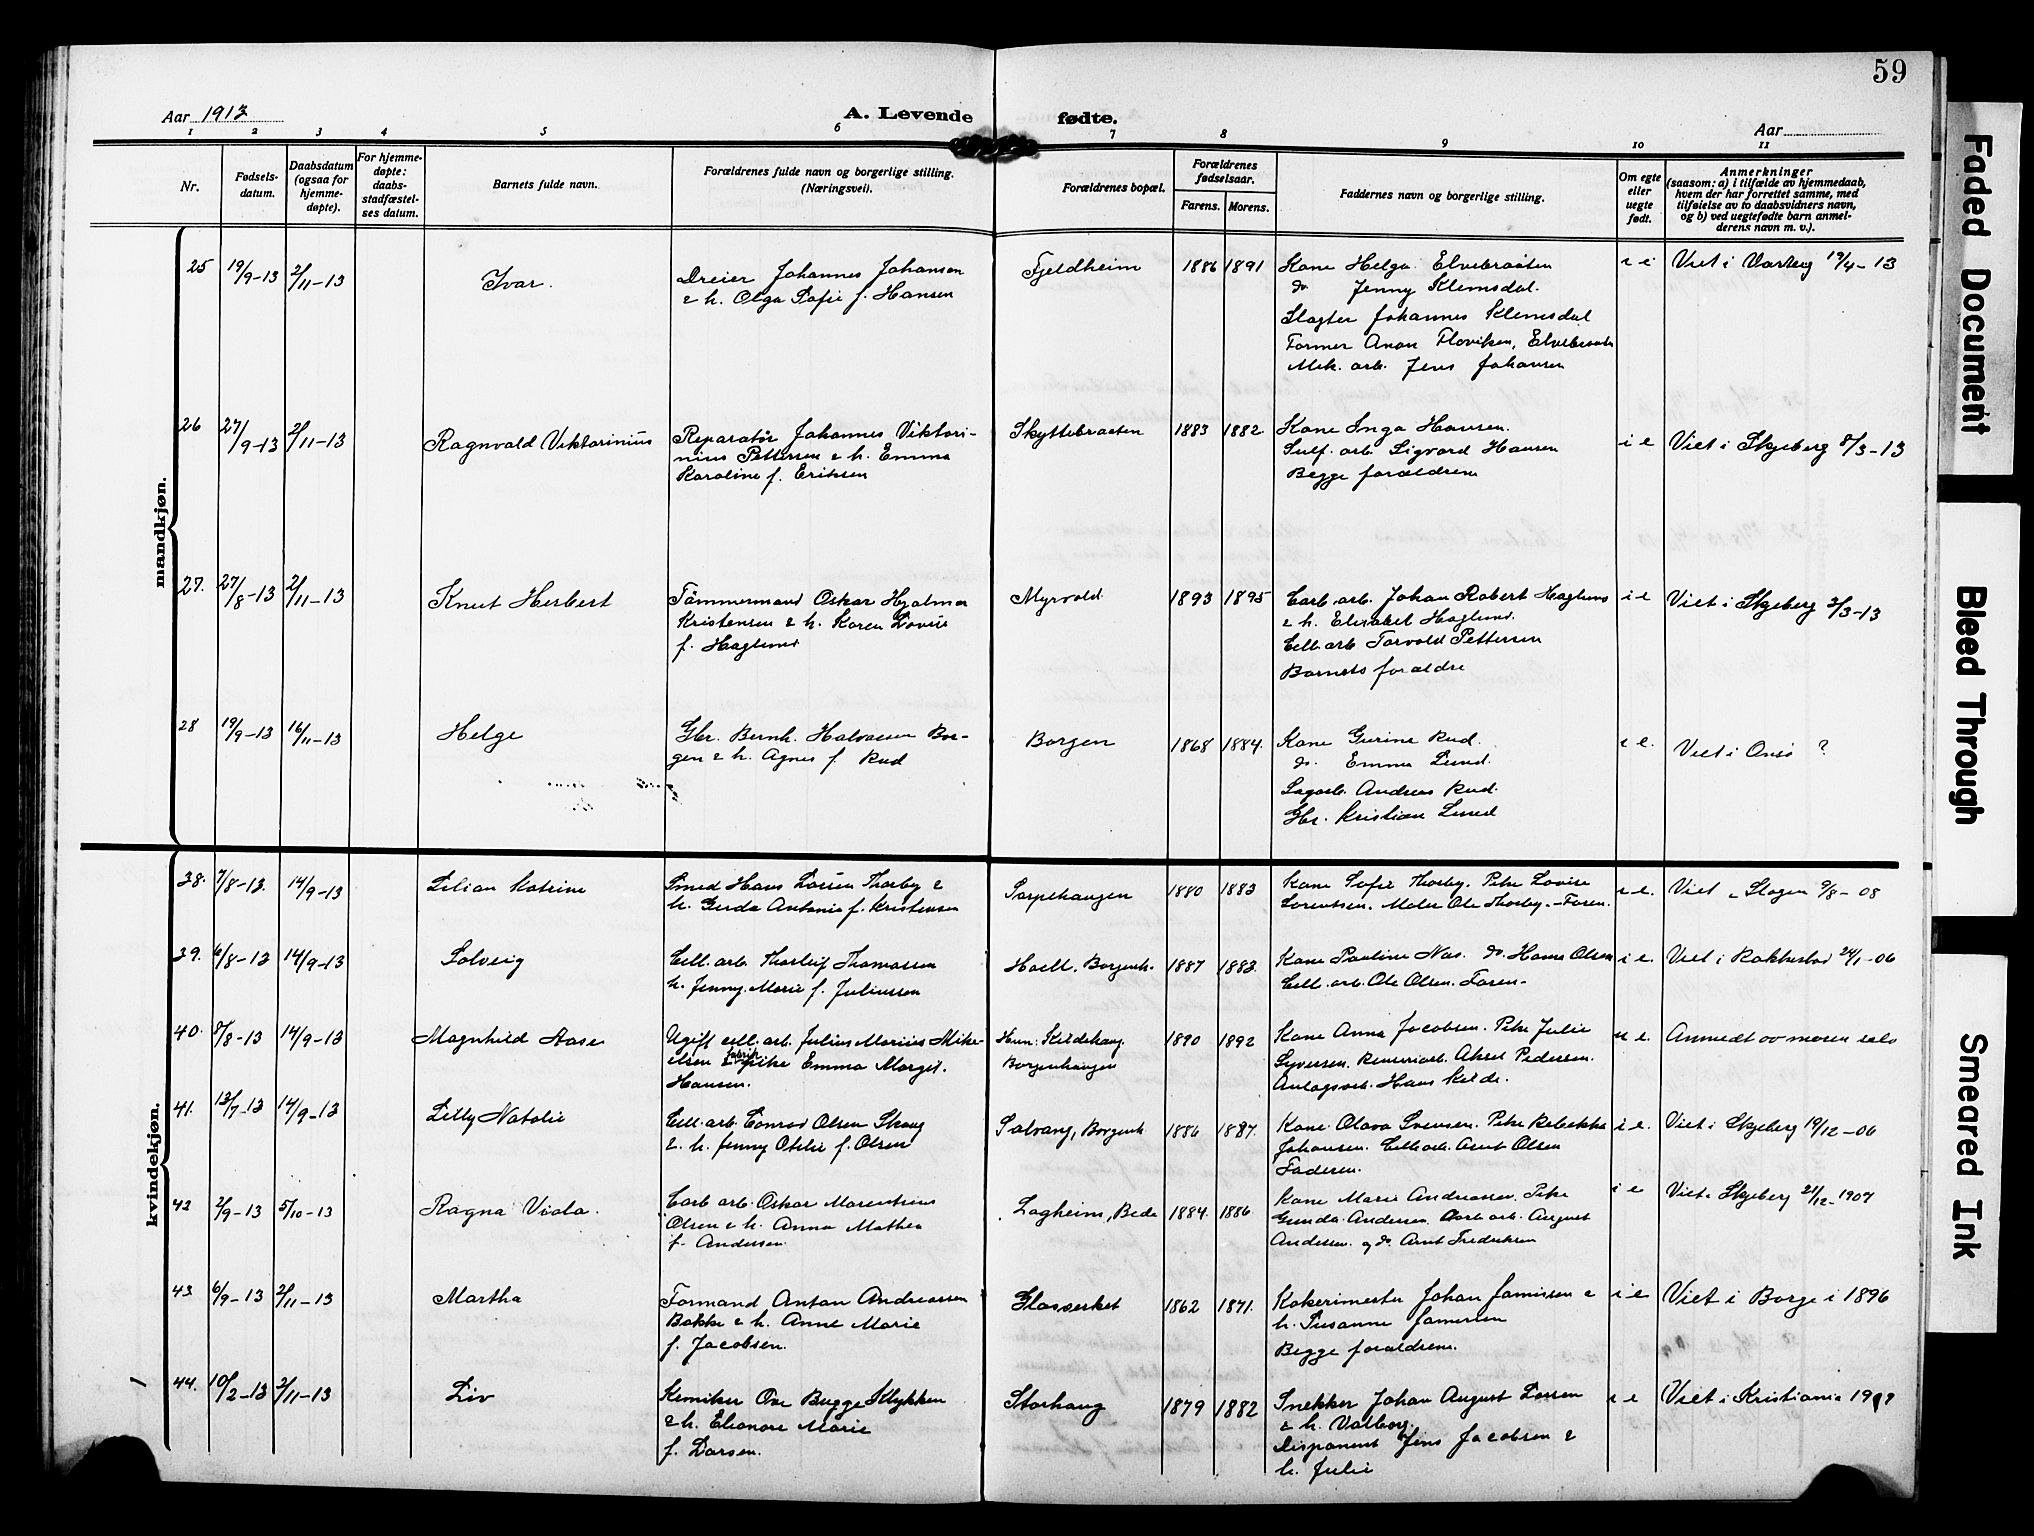 59
Aar 1913
A. Levende fødte.
Aar
1 2 3 4 5 6 7 8 9 10 11
Nr.
Fødsels-
datum.
Daabsdatum
(ogsaa for
hjemme-
døpte).
For hjemme-
døpte:
daabs-
stadfæstel-
ses datum.
Barnets fulde navn.
Forældrenes fulde navn og borgerlige stilling.
(Næringsvei).
Forældrenes bopæl.
Forældrenes
fødselsaar.
Farens. Morens.
Faddernes navn og borgerlige stilling.
Om egte
eller
uegte
født.
Anmerkninger
(saasom: a) i tilfælde av hjemmedaab,
hvem der har forrettet samme, med
tilføielse av to daabsvidners navn,
og b) ved uegtefødte barn anmel-
derens navn m. v.).
mandkjøn.
25 19/9-13 2/11-13 Ivar.
Dreier Johannes Johansen
& h. Olga Sofie f. Hansen
Fjeldheim 1886 1891
Kone Helga Elvebraaten
do Jenny Klemsdal.
Slagter Johannes Klemsdal
Former Anon Floviken, Elvebraaten
Mek. arb. Jens Johansen
i e Viet i Varteig 19/4-13
26 27/9-13 2/11-13 Ragnvald Viktorinius
Reparatør Johannes Viktori-
nius Pettersen & h. Emma
Karoline f. Eriksen
Skyttebraaten 1883 1882
Kone Inga Hansen.
Sulf. arb. Sigvard Hansen
Begge forældrene
i e Viet i Skjeberg 8/3-13
27. 27/8-13 2/11-13 Knut Herbert
Tømmermand Oskar Hjalmar
Kristensen & h. Karen Lovise
f. Haglund
Myrvold 1893 1895
Carb. arb. Johan Robert Haglund
& h. Elisabet Haglund.
Cell. arb Torvald Pettersen
Barnets forældre
i e Viet i Skjeberg 2/3-13
28 19/9-13 16/11-13 Helge
Gbr. Bernh. Halvorsen Bor-
gen & h. Agnes f. Rud
Borgen 1868 1884.
Kone Gurine Rud.
do. Emma Lund.
Sagarb. Andreas Rud.
Gbr. Kristian Lund
i e. Viet i Onsø ?
kvindekjøn.
38. 7/8-13. 14/9-13 Lilian Katrine
Smed Hans Lauren Thorby &
h. Gerda Antonie f. Kristensen
Sarpehaugen 1880 1883
Kone Sofie Thorby. Pike Lovise
Lorentsen. Maler Ole Thorby. - Faren.
i e. Viet i Slagen 9/8-08
39. 6/8-13 14/9-13 Solveig
Cell. arb. Thorleif Thomassen
h. Jenny Marie f. Juliussen
Hoell. Borgenh. 1887 1883.
Kone Pauline Næs. do. Hanna Olsen
Cell. arb. Ole Olsen. Faren.
i e. Viet i Rakkestad 24/1-06
40. 8/8-13 14/9-13 Magnhild Aase
Ugift cell. arb. Julius Marius Mikk-
elsen & fabrik pike Emma Margit.
Hansen.
Hum: Kildehaug
Borgenhaugen 1890 1892
Kone Anna Jacobsen. Pike Julie
Syversen. Renseriarb. Aksel Pedersen.
Anlagsarb. Hans Kilde.
u e. Anmeldt av moren selv
41. 13/7-13 14/9-13 Lilly Natalie
Cell. arb. Conrad Olsen Skaug
& h. Jenny Otilie f. Olsen
Solvang, Borgenh 1886 1887.
Kone Olava Svensen. Pike Rebekka
Johansen. Cell. arb. Arnt Olsen
Faderen.
i e. Viet i Skjeberg 19/12-06
42 2/9-13 5/10-13 Ragna Viola.
Carb. arb. Oskar Marentius
Olsen & h. Anna Mathea
f. Andersen
Lagheim, Bede 1884. 1886
Kone Marie Andreassen. Pike
Gunda Andersen. Carb. arb. August
Andersen og do. Arnt Fredriksen
i e Viet i Skjeberg 21/12-1907
43 6/9-13 2/11-13 Martha
Formand Anton Andreassen
Bakke & h. Anne Marie
f. Jacobsen.
Glasverket 1862 1871.
Kokerimester Johan Jamissen &
h. Susanne Jamissen
Begge forældrene.
i e Viet i Borge i 1896
44. 10/2-13 2/11-13 Liv
Kemiker Ove Bugge Klykken
& h. Eleonore Marie
f. Larsen.
Storhaug 1879 1882
Snekker Johan August Larsen
& h. Valborg.
Disponent Jens Jacobsen &
h. Julie
i e Viet i Kristiania
Faded Document
Bleed Through
Smeared Ink